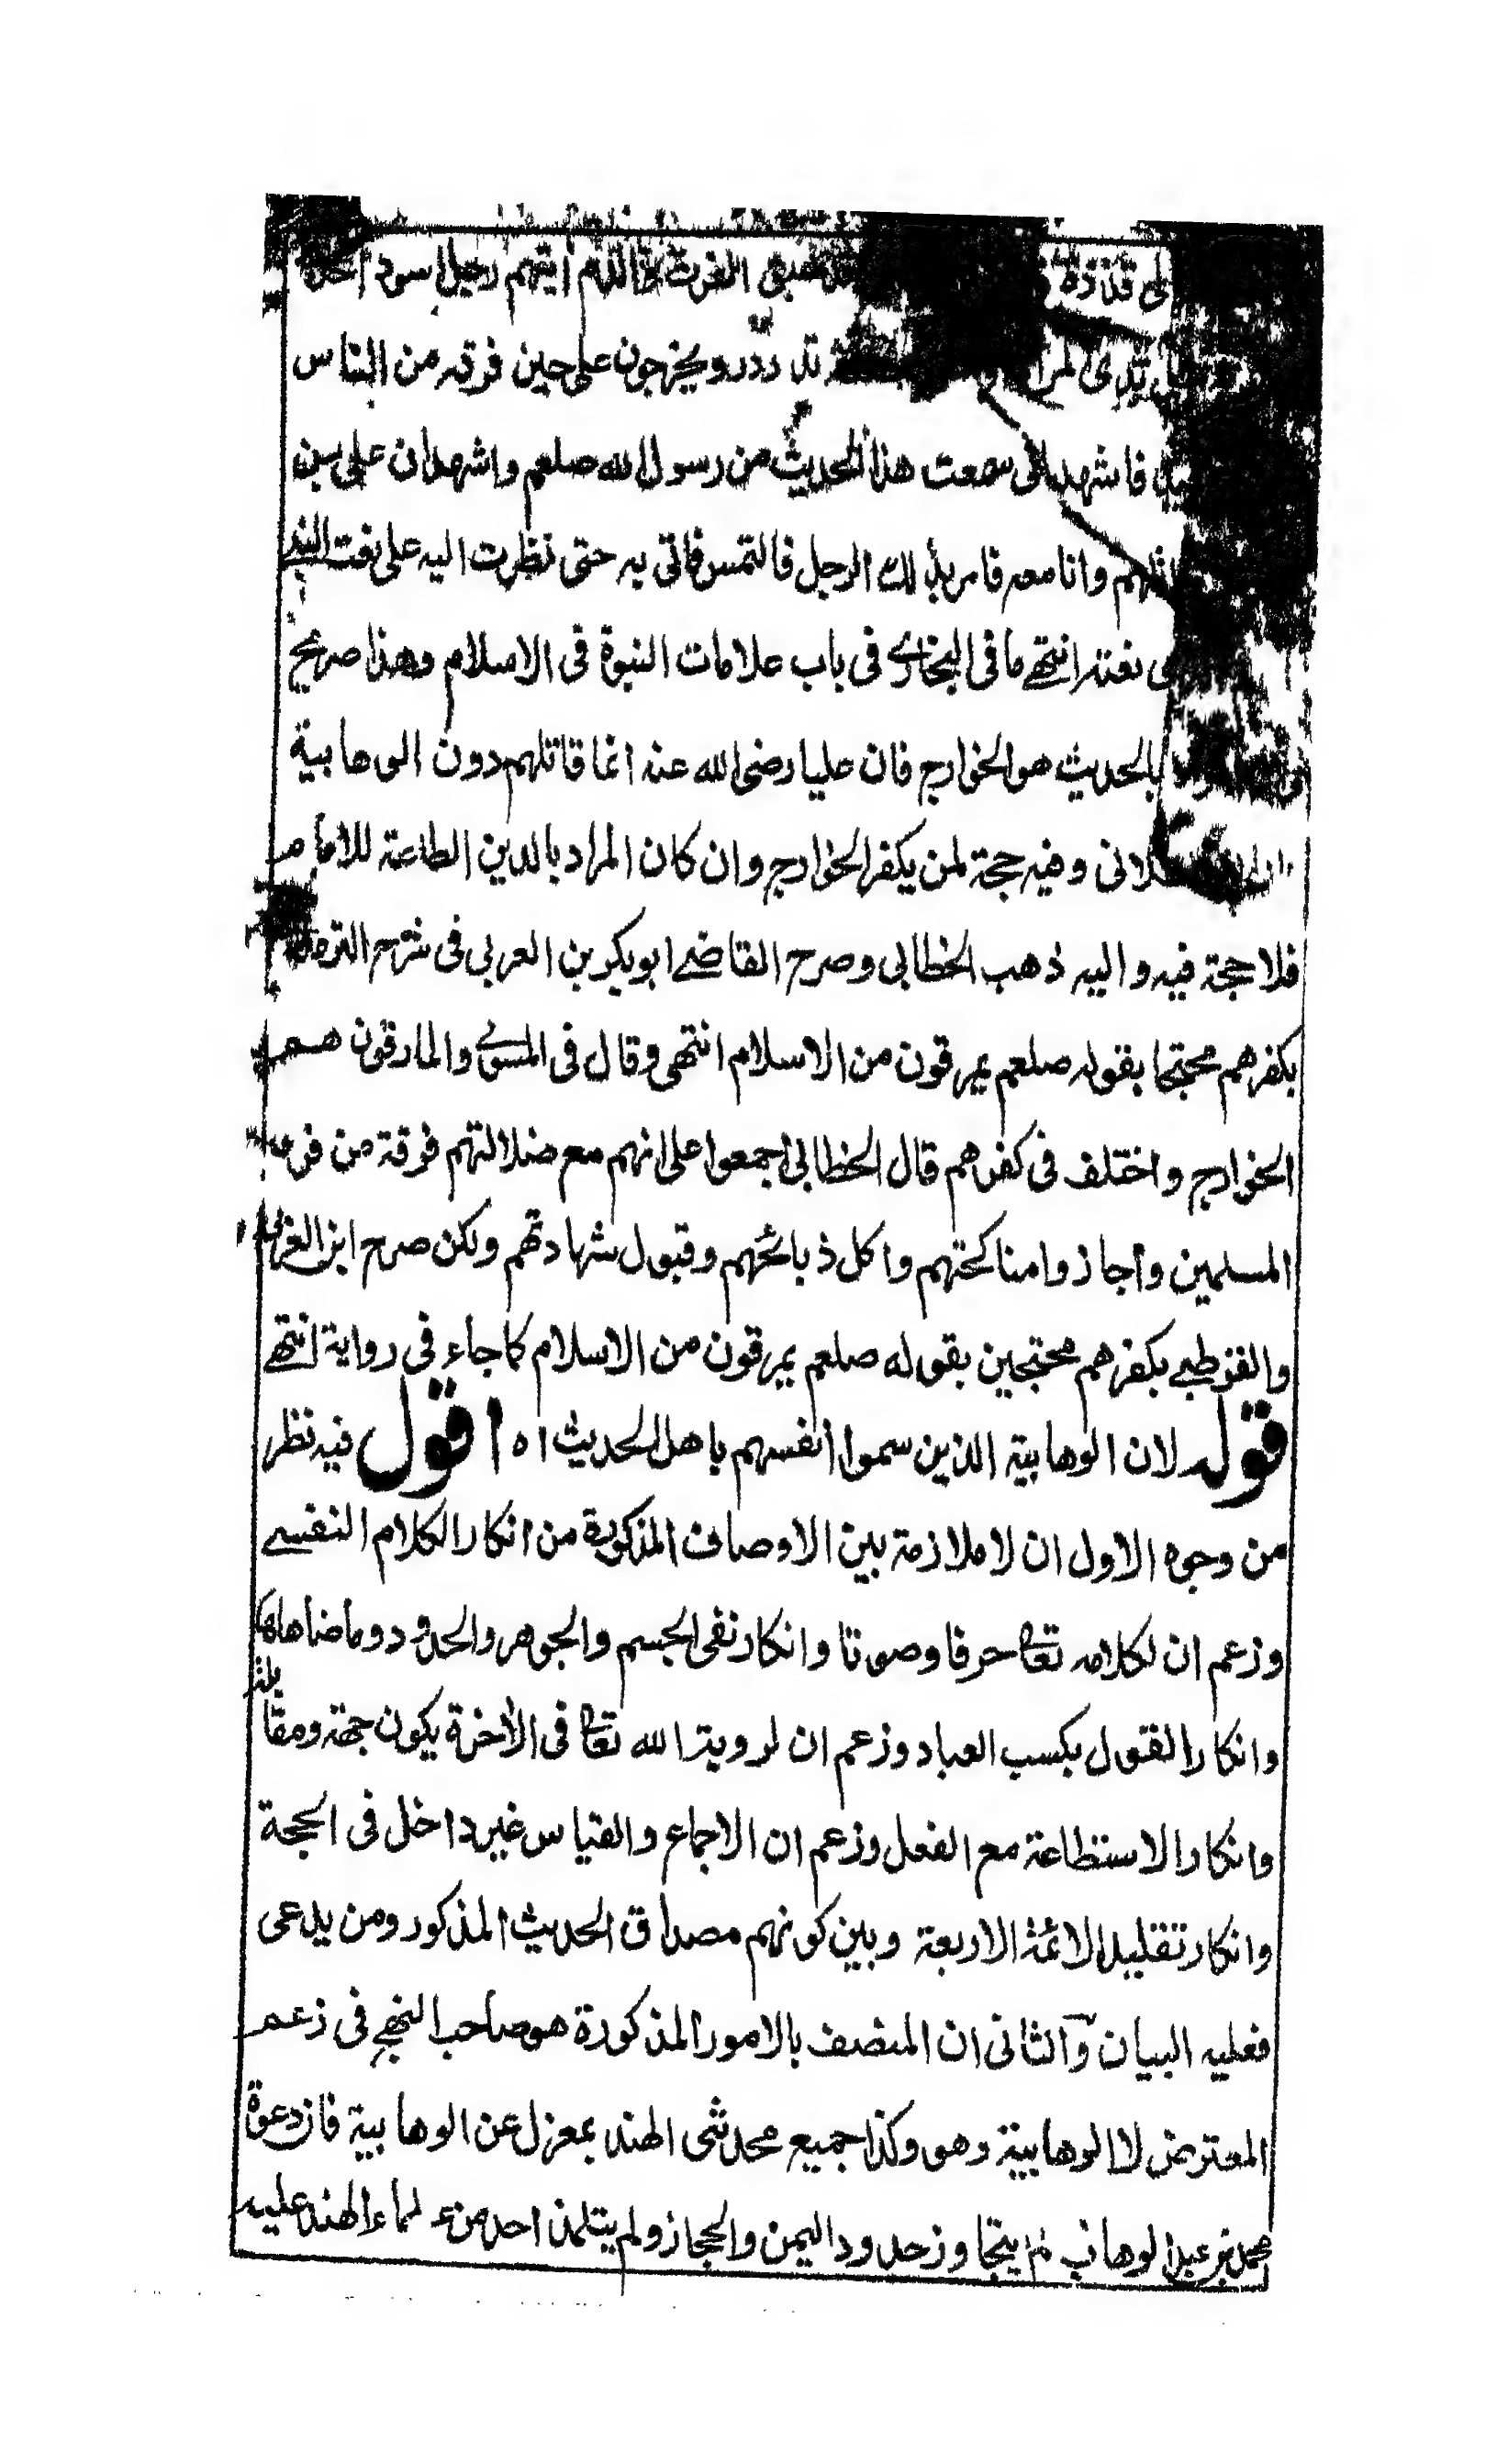 الى قذذه سبق الفرث والدم ايتهم رجل اسود احدى
ثدى المرأة تدردر ويخرجون على حين فرقه من الناس
فاشهد انى سمعت هذا الحديث من رسول الله صلعم واشهد ان على بن
قاتلهم وانا معه فامر بذلك الرجل فالتمس فاتى به حتى نظرت اليه على نعت النبى
نعته انتهى ما فى البخارى فى باب علامات النبوة فى الاسلام وهذا صريح
بالحديث هو الخوارج فان عليا رضى الله عنه انما قاتلهم دون الوهابية
وفيه حجة لمن يكفر الخوارج وان كان المراد بالدين الطاعة للامام
فلا حجة فيه واليه ذهب الخطابى وصرح القاضى ابوبكر بن العربى فى شرح الترمذى
بكفرهم محتجا بقوله صلعم يمرقون من الاسلام انتهى وقال فى المسوى والمارقون هم
الخوارج واختلف فى كفرهم قال الخطابى اجمعوا على انهم مع ضلالتهم فرقة من فرق
المسلمين واجازوا مناكحتهم واكل ذبائحهم وقبول شهادتهم ولكن صرح ابن العربى
والقرطبى بكفرهم محتجين بقوله صلعم يمرقون من الاسلام كما جاء فى رواية انتهى
قوله لان الوهابية الذين سموا انفسهم باهل الحديث اه اقول فيه نظر
من وجوه الاول ان لا ملازمة بين الاوصاف المذكورة من انكار الكلام النفسى
وزعم ان لكلامه تعالى حرفا وصوتا وانكار نفى الجسم والجوهر والحدود وما ضاهاها
وانكار القول بكسب العباد وزعم ان لرويته الله تعالى فى الأخرة يكون جهة ومقابلة
وانكار الاستطاعة مع الفعل وزعم ان الاجماع والقياس غير داخل فى الحجة
وانكار تقليد الائمة الاربعة وبين كونهم مصداق الحديث المذكور ومن يدعى
فعليه البيان والثانى ان المتصف بالامور المذكورة هو صاحب النهج فى زعم
المعترض لا الوهابية وهو وكذا جميع محدثى الهند بمعزل عن الوهابية فان دعوة
محمد بن عبد الوهاب لم يتجاوز حدود اليمن والحجاز ولم يتلمذ احد من علماء الهند عليه